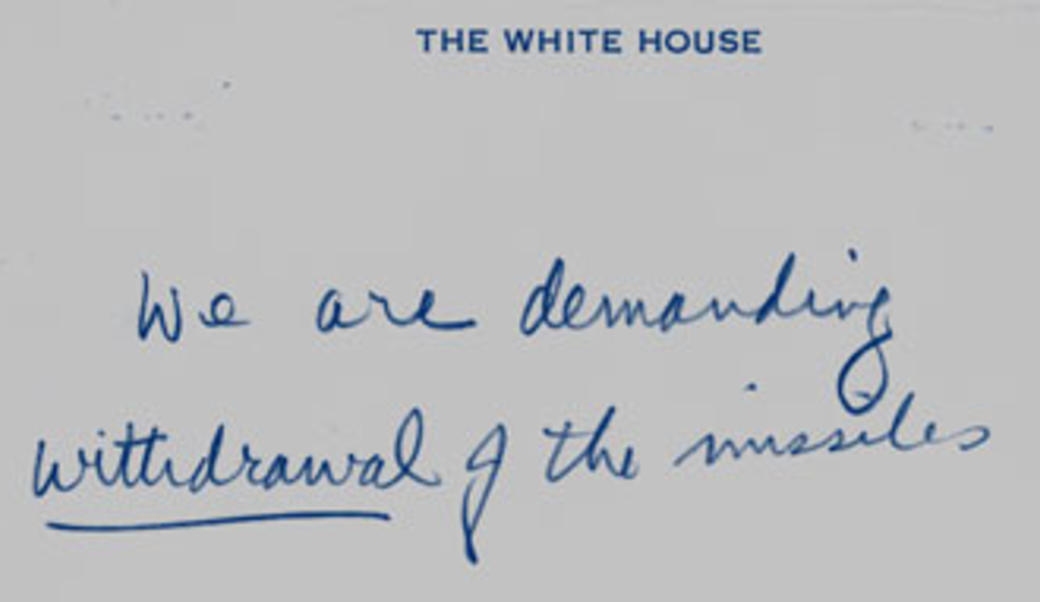 THE WHITE HOUSE
We are demanding
withdrawal of the missiles